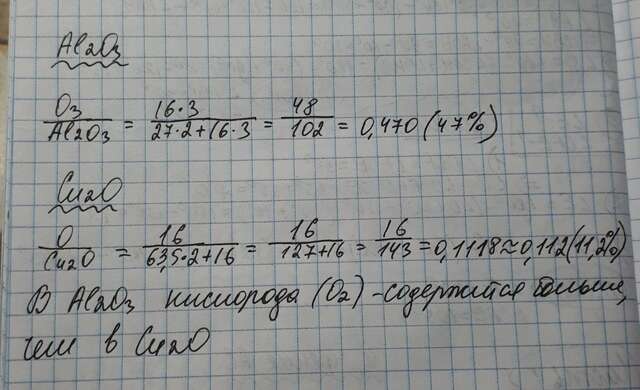 Al2O3
O3/Al2O3 = 16·3/27·2+16·3 = 48/102 = 0,470 (47%)
Cu2O
O/Cu2O = 16/63,5·2+16 = 16/127+16 = 16/143 = 0,1118≈0,112(11,2%)
В Al2O3 кислорода (O2) - содержится больше,
чем в Cu2O